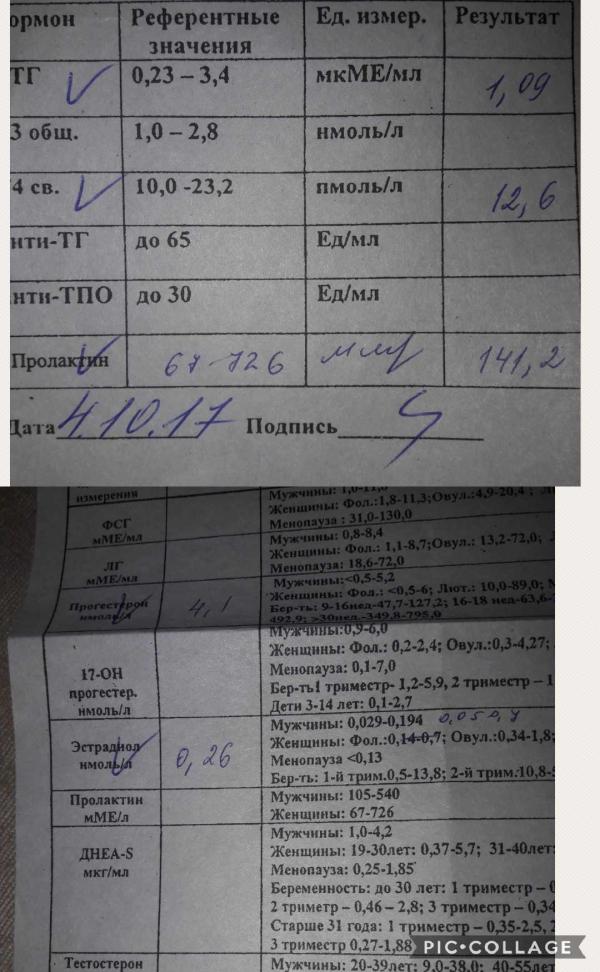 ормон Референтные значения Ед. измер. Результат
ТГ 0,23 – 3,4 мкМЕ/мл 1,09
3 общ. 1,0 – 2,8 нмоль/л
4 св. 10,0 -23,2 пмоль/л 12,6
нти-ТГ до 65 Ед/мл
нти-ТПО до 30 Ед/мл
Пролактин 67-726 141,2
Дата 4.10.17 Подпись
измерения Мужчины: 1,0-11,0
Женщины: Фол.:1,8-11,3;Овул.:4,9-20,4 ;
ФСГ Менопауза : 31,0-130,0
мМЕ/мл Мужчины: 0,8-8,4
Женщины: Фол.: 1,1-8,7;Овул.: 13,2-72,0;
ЛГ Менопауза: 18,6-72,0
мМЕ/мл Мужчины:<0,5-5,2
Прогестерон 4,1 Женщины: Фол.: <0,5-6; Лют.: 10,0-89,0;
нмоль/л Бер-ть: 9-16нед-47,7-127,2; 16-18 нед-63,6-
492,9; >30нед.-349,8-795,0
Мужчины:0,9-6,0
Женщины: Фол.: 0,2-2,4; Овул.:0,3-4,27;
17-ОН Менопауза: 0,1-7,0
прогестер. Бер-ть1 триместр- 1,2-5,9, 2 триместр – 1
нмоль/л Дети 3-14 лет: 0,1-2,7
Мужчины: 0,029-0,194
Эстрадиол 0,26 Женщины: Фол.:0,14-0,7; Овул.:0,34-1,8;
нмоль/л Менопауза <0,13
Бер-ть: 1-й трим.0,5-13,8; 2-й трим.10,8-
Пролактин Мужчины: 105-540
мМЕ/л Женщины: 67-726
Мужчины: 1,0-4,2
ДНЕА-S Женщины: 19-30лет: 0,37-5,7; 31-40лет:
мкг/мл Менопауза: 0,25-1,85
Беременность: до 30 лет: 1 триместр – 0
2 триметр – 0,46 – 2,8; 3 триместр – 0,34
Старше 31 года: 1 триместр – 0,35-2,5, 2
3 триместр 0,27-1,88
PIC•COLLAGE
Тестостерон Мужчины: 20-39лет: 9,0-38,0; 40-55лет